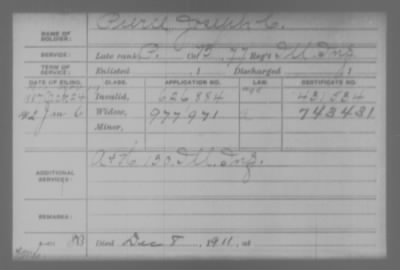 NAME OF SOLDIER: Pierce Joseph C.
SERVICE: Late rank P. Co. 77 Reg't Ill Inf.
TERM OF SERVICE: Enlisted , 1 Discharged , 1
DATE OF FILING. CLASS. APPLICATION NO. LAW. CERTIFICATE NO.
Invalid, 626884 431534
Jan 6 Widow, 977971 743431
Minor,
ADDITIONAL SERVICES: A & K 130 Ill. Inf.
REMARKS:
Died Dec 8, 1911, at